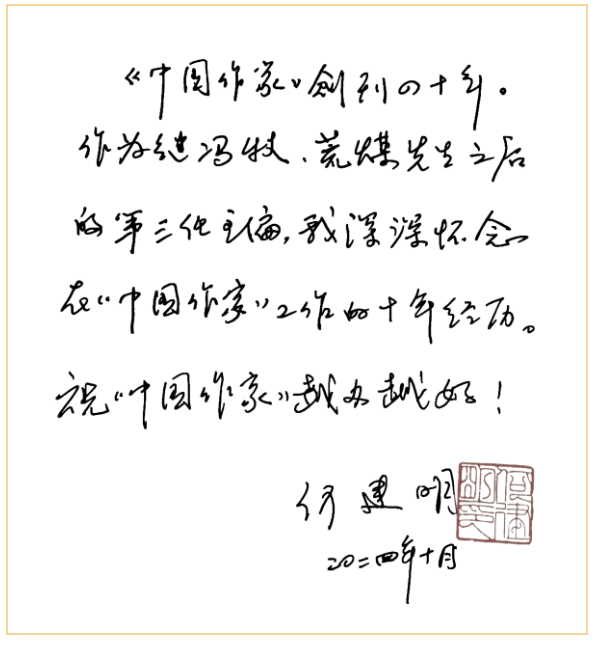 《中国作家》创刊四十年。
作为继冯牧、荒煤先生之后
的第三代主编，我深深怀念
在《中国作家》工作的十年经历。
祝《中国作家》越办越好！
何建明
二〇二四年十月
何建明印